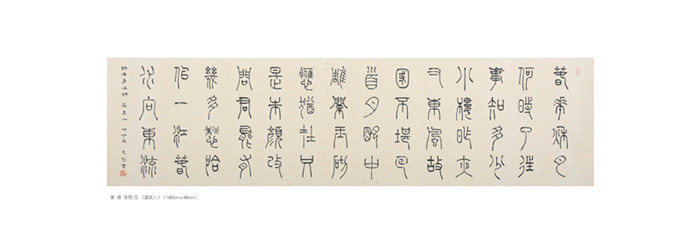 春華秋月
何時了往
事知多少
小樓昨夜
又東風故
國不堪回
首月明中
雕欄玉砌
應猶在只
是朱顏改
問君能有
幾多愁恰
似一江春
水向東流
李煜 词 《虞美人》（180cm×48cm）